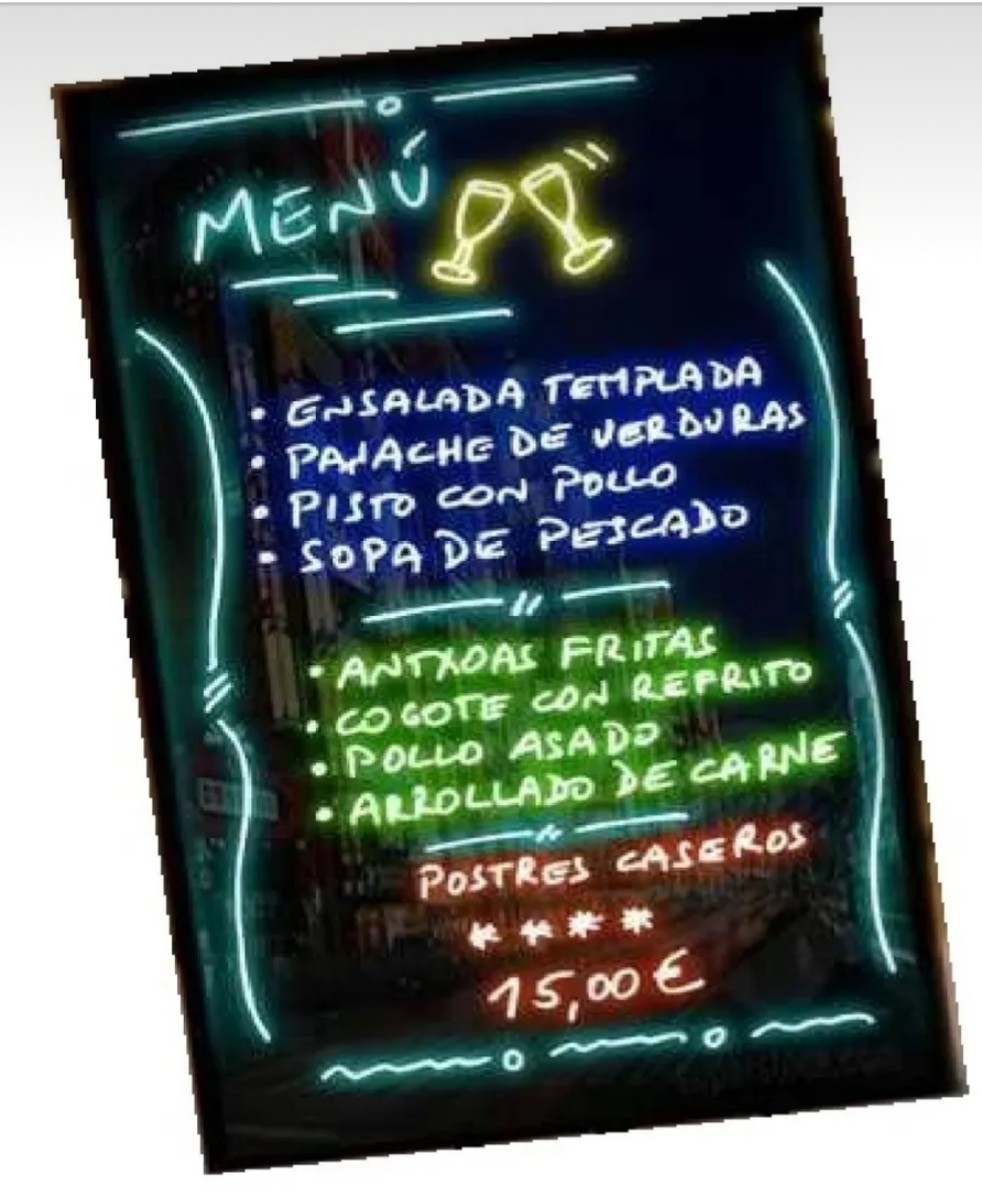 MENÚ
• ENSALADA TEMPLADA
• PANACHE DE VERDURAS
• PISTO CON POLLO
• SOPA DE PESCADO
• ANTXOAS FRITAS
• COGOTE CON REFRITO
• POLLO ASADO
• ARROLLADO DE CARNE
POSTRES CASEROS
* * * *
15,00 €